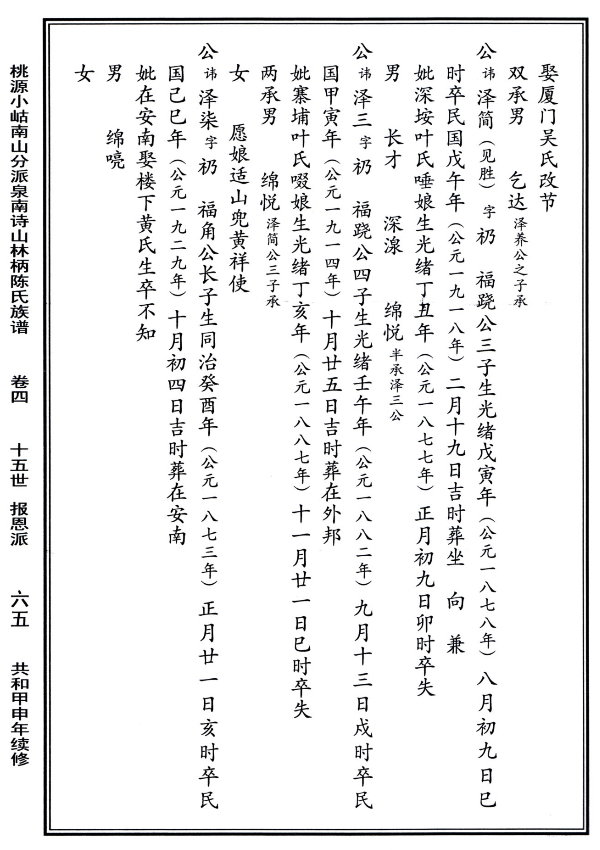 娶厦门吴氏改节
双承男 乞达 泽养公之子承
公 讳 泽简（见胜）字 礽 福跷公三子生光绪戊寅年（公元一八七八年）八月初九日巳
时卒民国戊午年（公元一九一八年）二月十九日吉时葬坐 向 兼
妣深垵叶氏唾娘生光绪丁丑年（公元一八七七年）正月初九日卯时卒失
男 长才 深湶 绵悦 半承泽三公
公 讳 泽三 字 礽 福跷公四子生光绪壬午年（公元一八八二年）九月十三日戍时卒民
国甲寅年（公元一九一四年）十月廿五日吉时葬在外邦
妣寨埔叶氏啜娘生光绪丁亥年（公元一八八七年）十一月廿一日巳时卒失
两承男 绵悦 泽简公三子承
女 愿娘适山兜黄祥使
公 讳 泽柒 字 礽 福角公长子生同治癸酉年（公元一八七三年）正月廿一日亥时卒民
国己巳年（公元一九二九年）十月初四日吉时葬在安南
妣在安南娶楼下黄氏生卒不知
男 绵喨
女
桃源小岵南山分派泉南诗山林柄陈氏族谱 卷四 十五世 报恩派 六五 共和甲申年续修